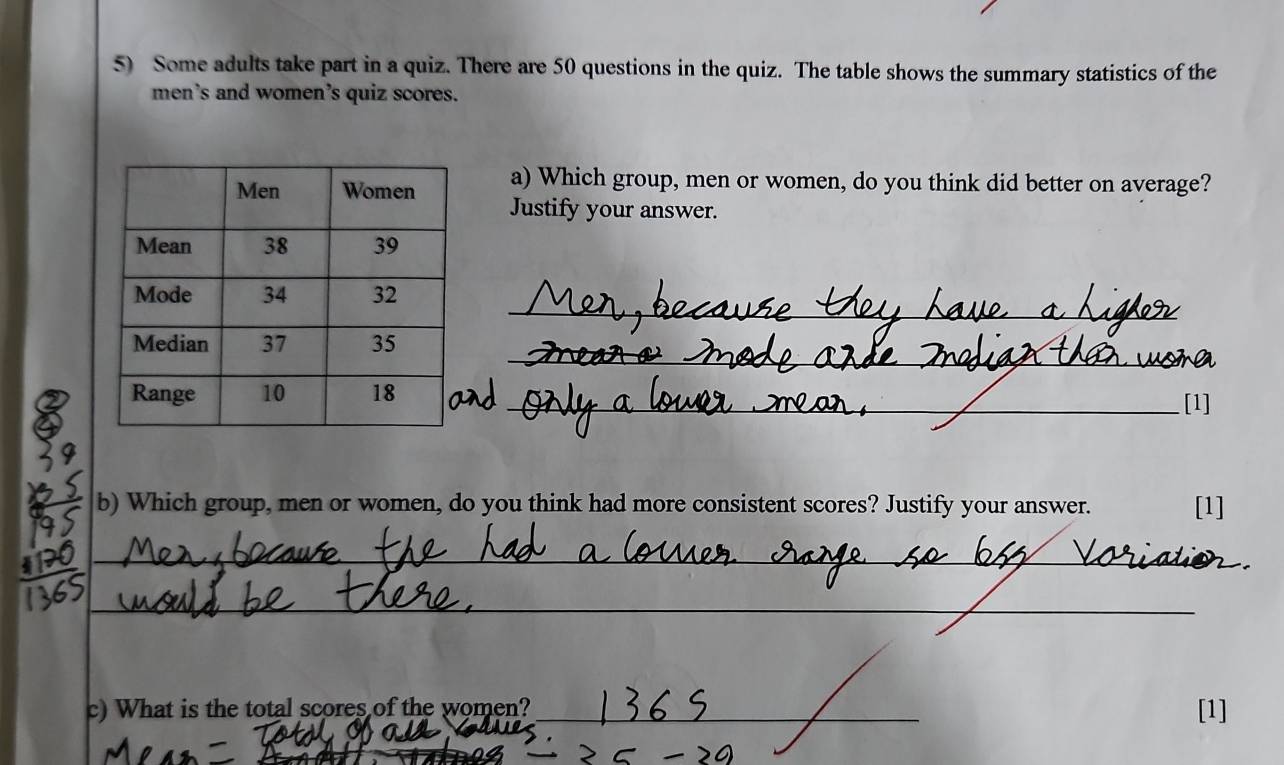 5) Some adults take part in a quiz. There are 50 questions in the quiz. The table shows the summary statistics of the
men's and women's quiz scores.
Men Women
Mean 38 39
Mode 34 32
Median 37 35
Range 10 18
a) Which group, men or women, do you think did better on average?
Justify your answer.
Men, because they have a higher
mode ande median than women
and only a lower mean.
[1]
39
x35
195
1170
1365
b) Which group, men or women, do you think had more consistent scores? Justify your answer. [1]
Men, because the had a lower range so less variation.
would be there.
c) What is the total scores of the women? 1365 [1]
Total of all values.
Mean =